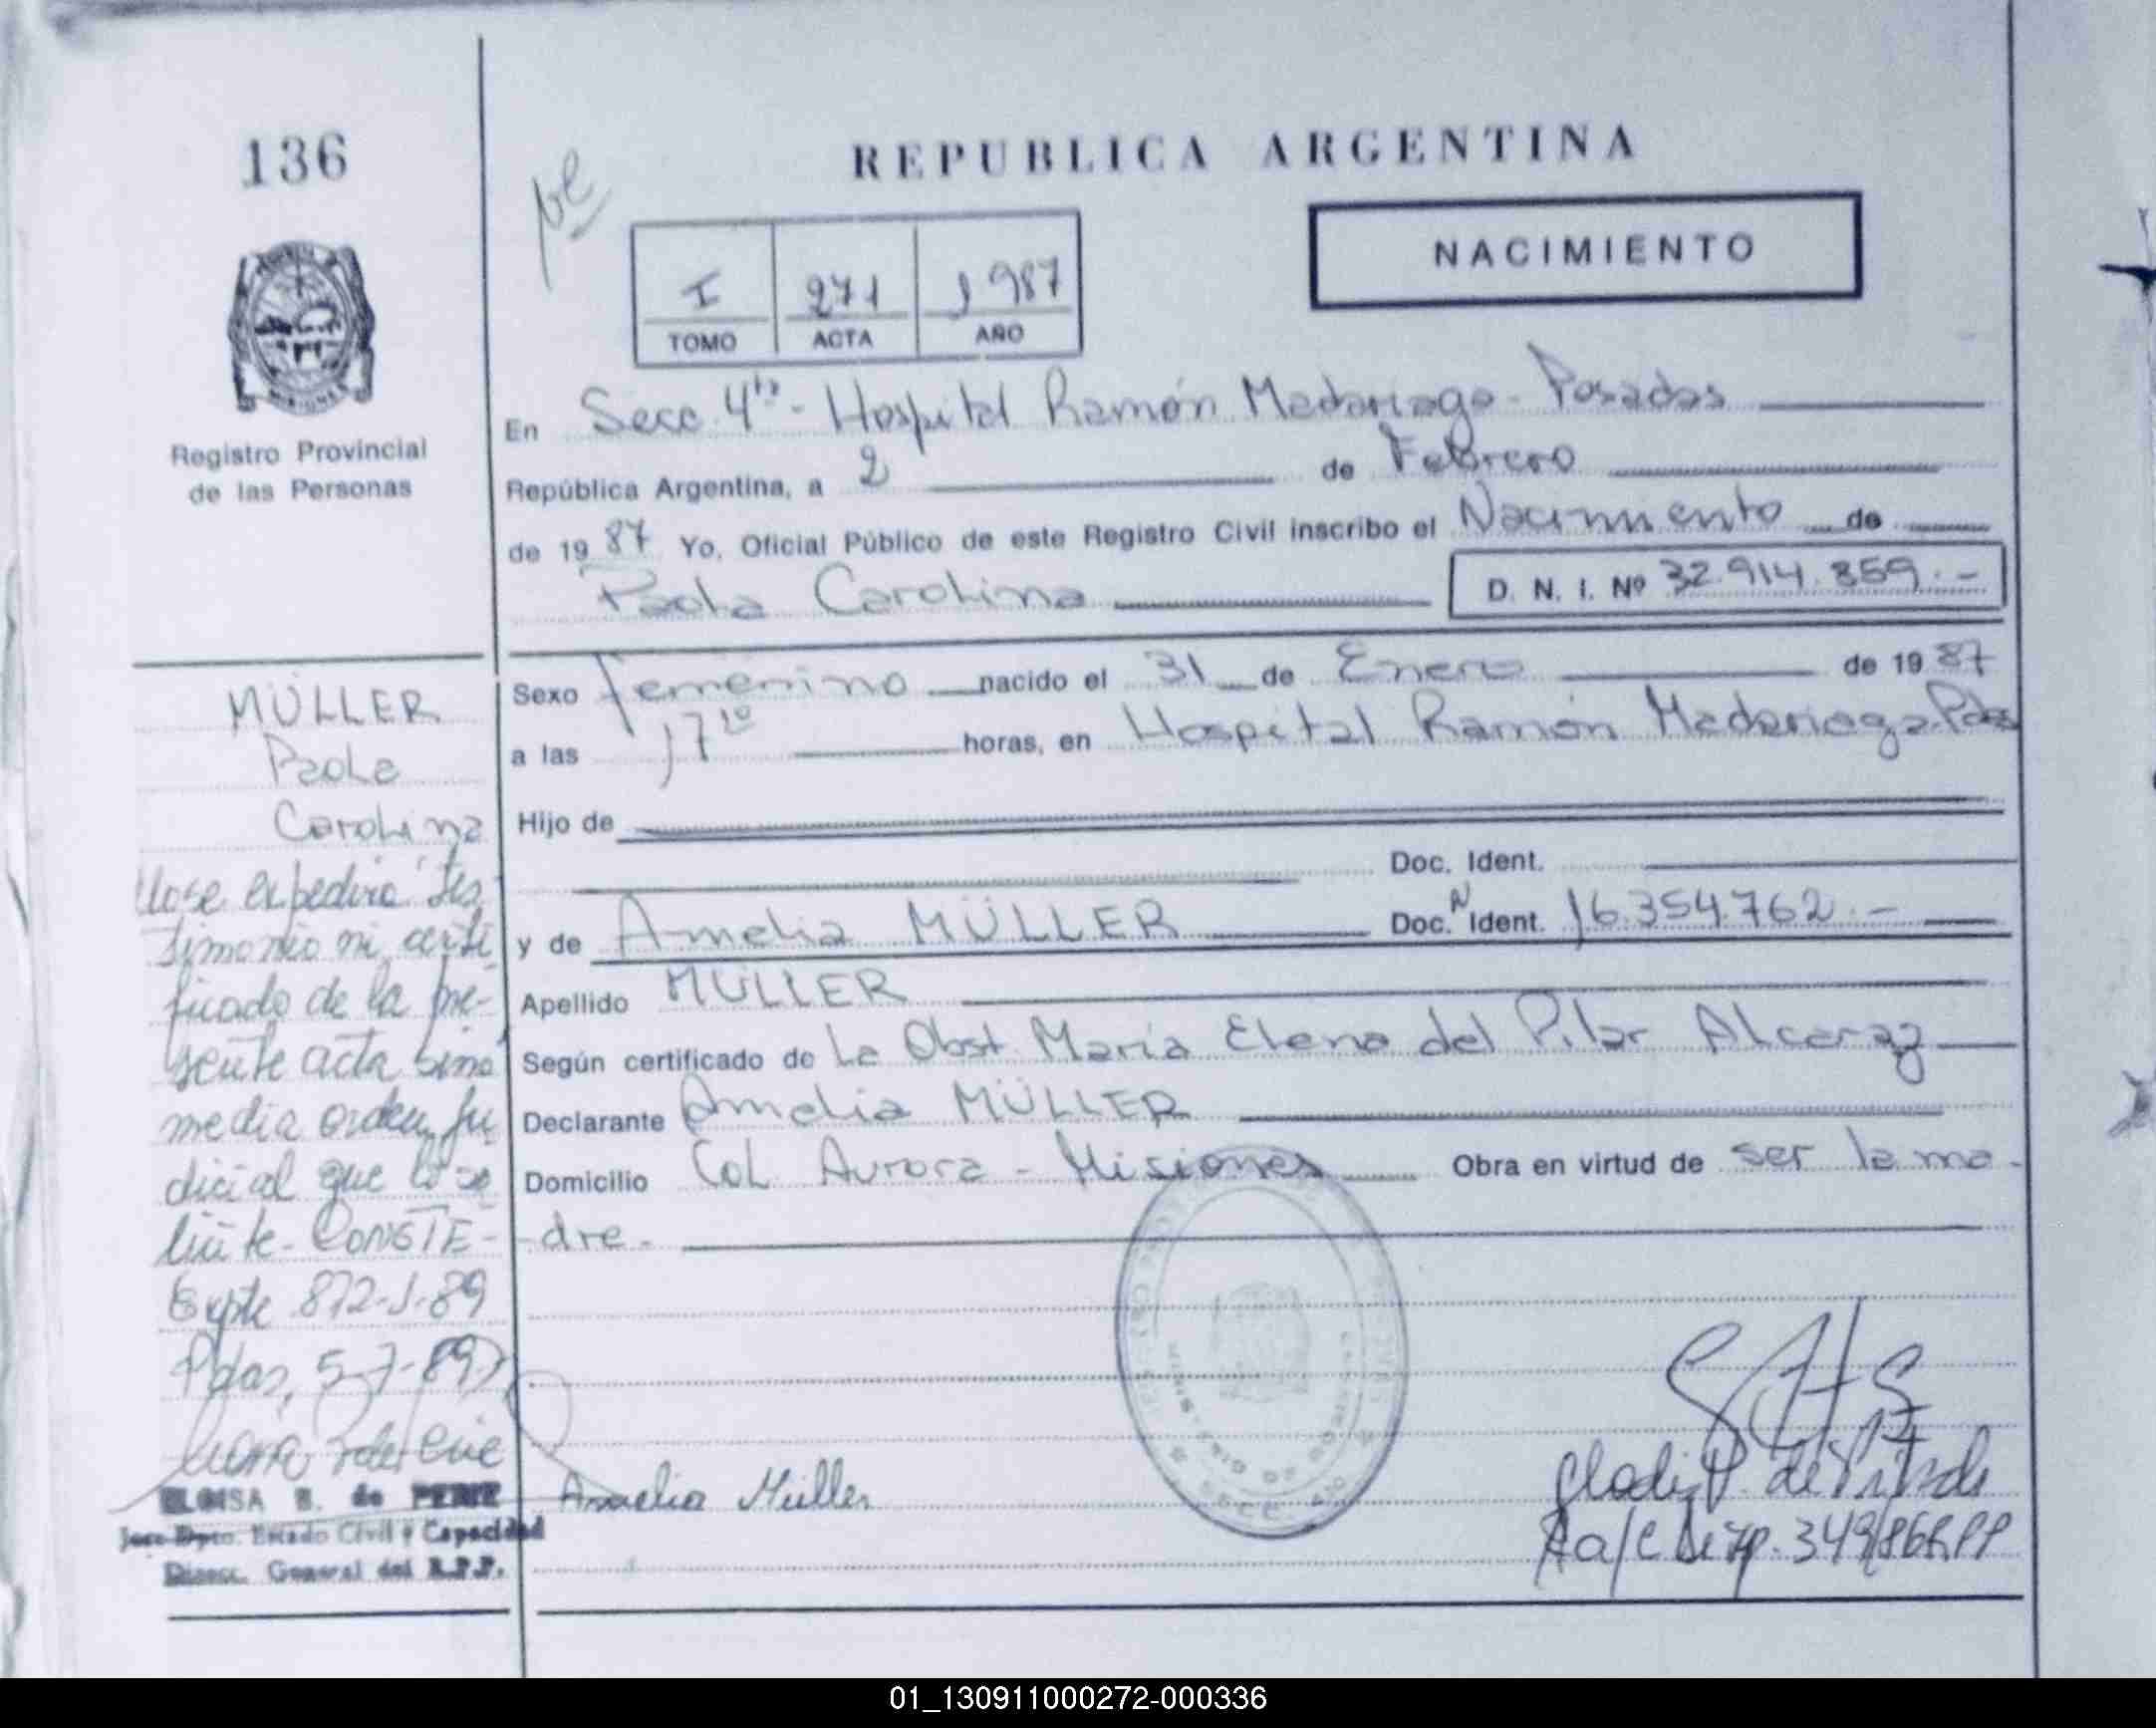 136
REPUBLICA ARGENTINA
NACIMIENTO
I 271 1987
TOMO ACTA AÑO
Registro Provincial
de las Personas
En Secc. 4ta - Hospital Ramón Madariaga - Posadas
República Argentina, a 2 de Febrero
de 19 87 Yo, Oficial Público de este Registro Civil inscribo el Nacimiento de
Paola Carolina D. N. I. Nº 32.914.859.-
Sexo femenino nacido el 31 de Enero de 19 87
a las 17 10 horas, en Hospital Ramón Madariaga. Pdas
Hijo de
Doc. Ident.
y de Amelia MÜLLER Doc. N Ident. 16.354.762.-
Apellido MÜLLER
Según certificado de La Obst. María Elena del Pilar Alcaraz
Declarante Amelia MÜLLER
Domicilio Col. Aurora - Misiones Obra en virtud de ser la ma-
dre.-
MÜLLER
Paola
Carolina
No se expedirá tes
timonio ni certi
ficado de la pre-
sente acta sino
media orden ju
dicial que lo so
licite - CONSTE-
Expte 872-J-89
Pdas, 5-7-89
ELOISA B. de
Jefe Dpto. Estado Civil y Capacidad
Direcc. General del R.P.P.
Amelia Müller
SECC. 4
a/c Disp. 349/86 R.PP
01_130911000272-000336